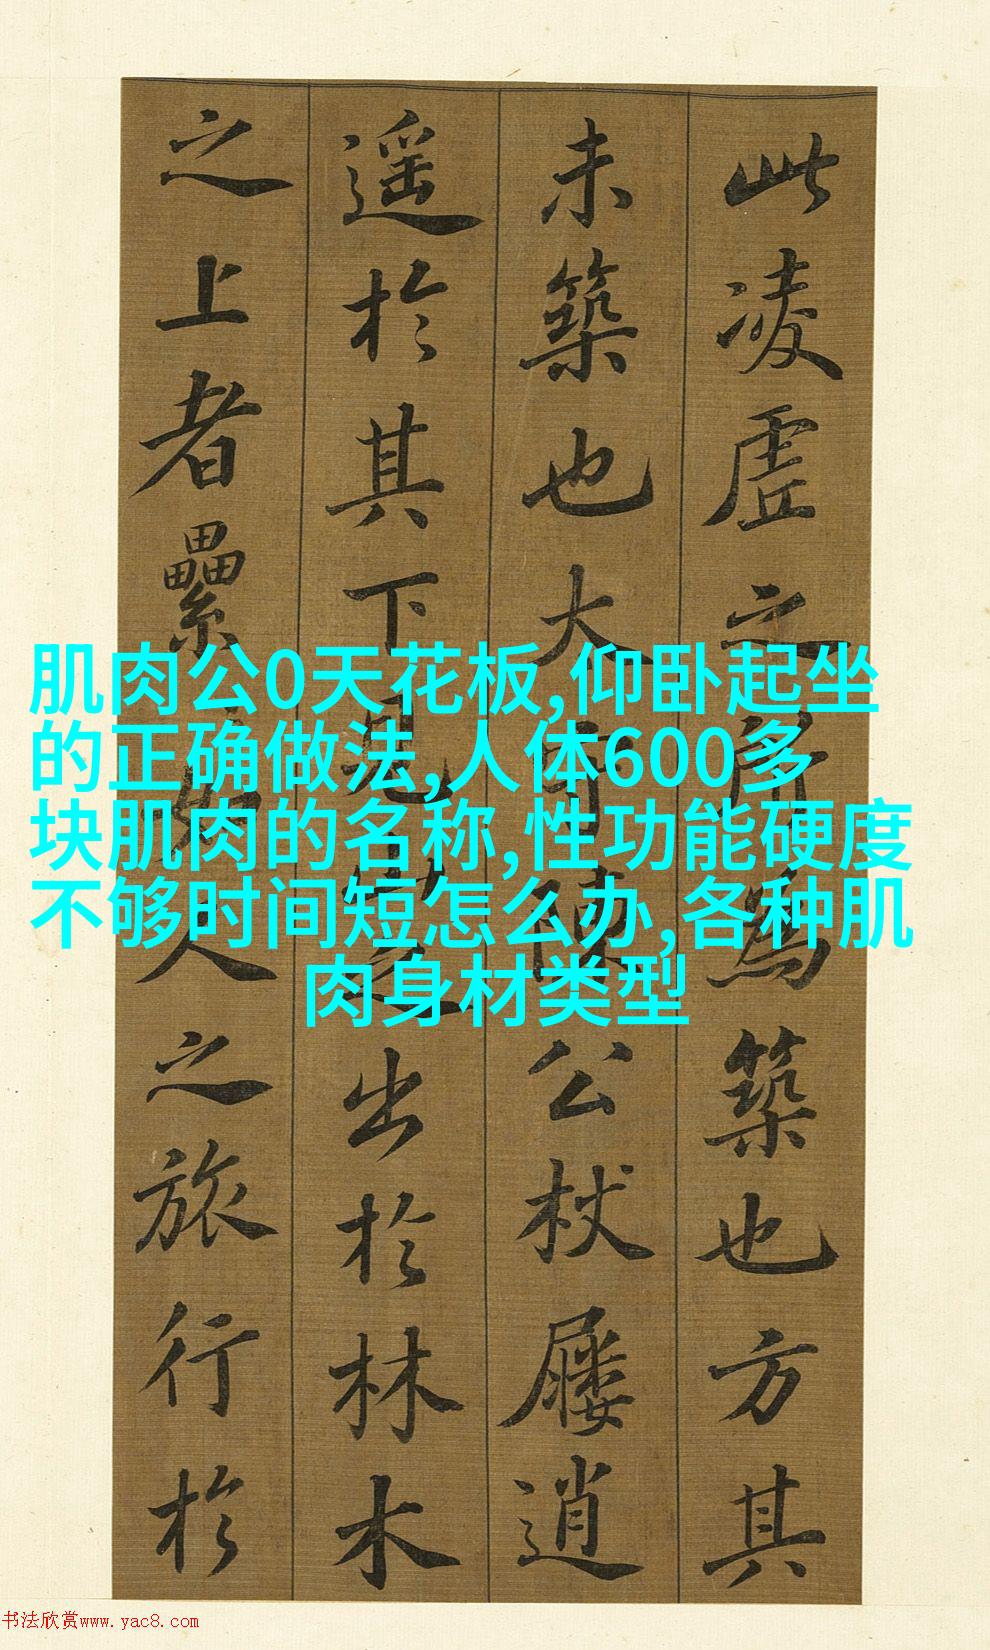 此凌虗之所為築也方其
未築也大守陳公杖屨逍
遥於其下見山之出於林木
之上者纍纍如人之旅行於
肌肉公0天花板,仰卧起坐
的正确做法,人体600多
块肌肉的名称,性功能硬度
不够时间短怎么办,各种肌
肉身材类型
书法欣赏www.yac8.com